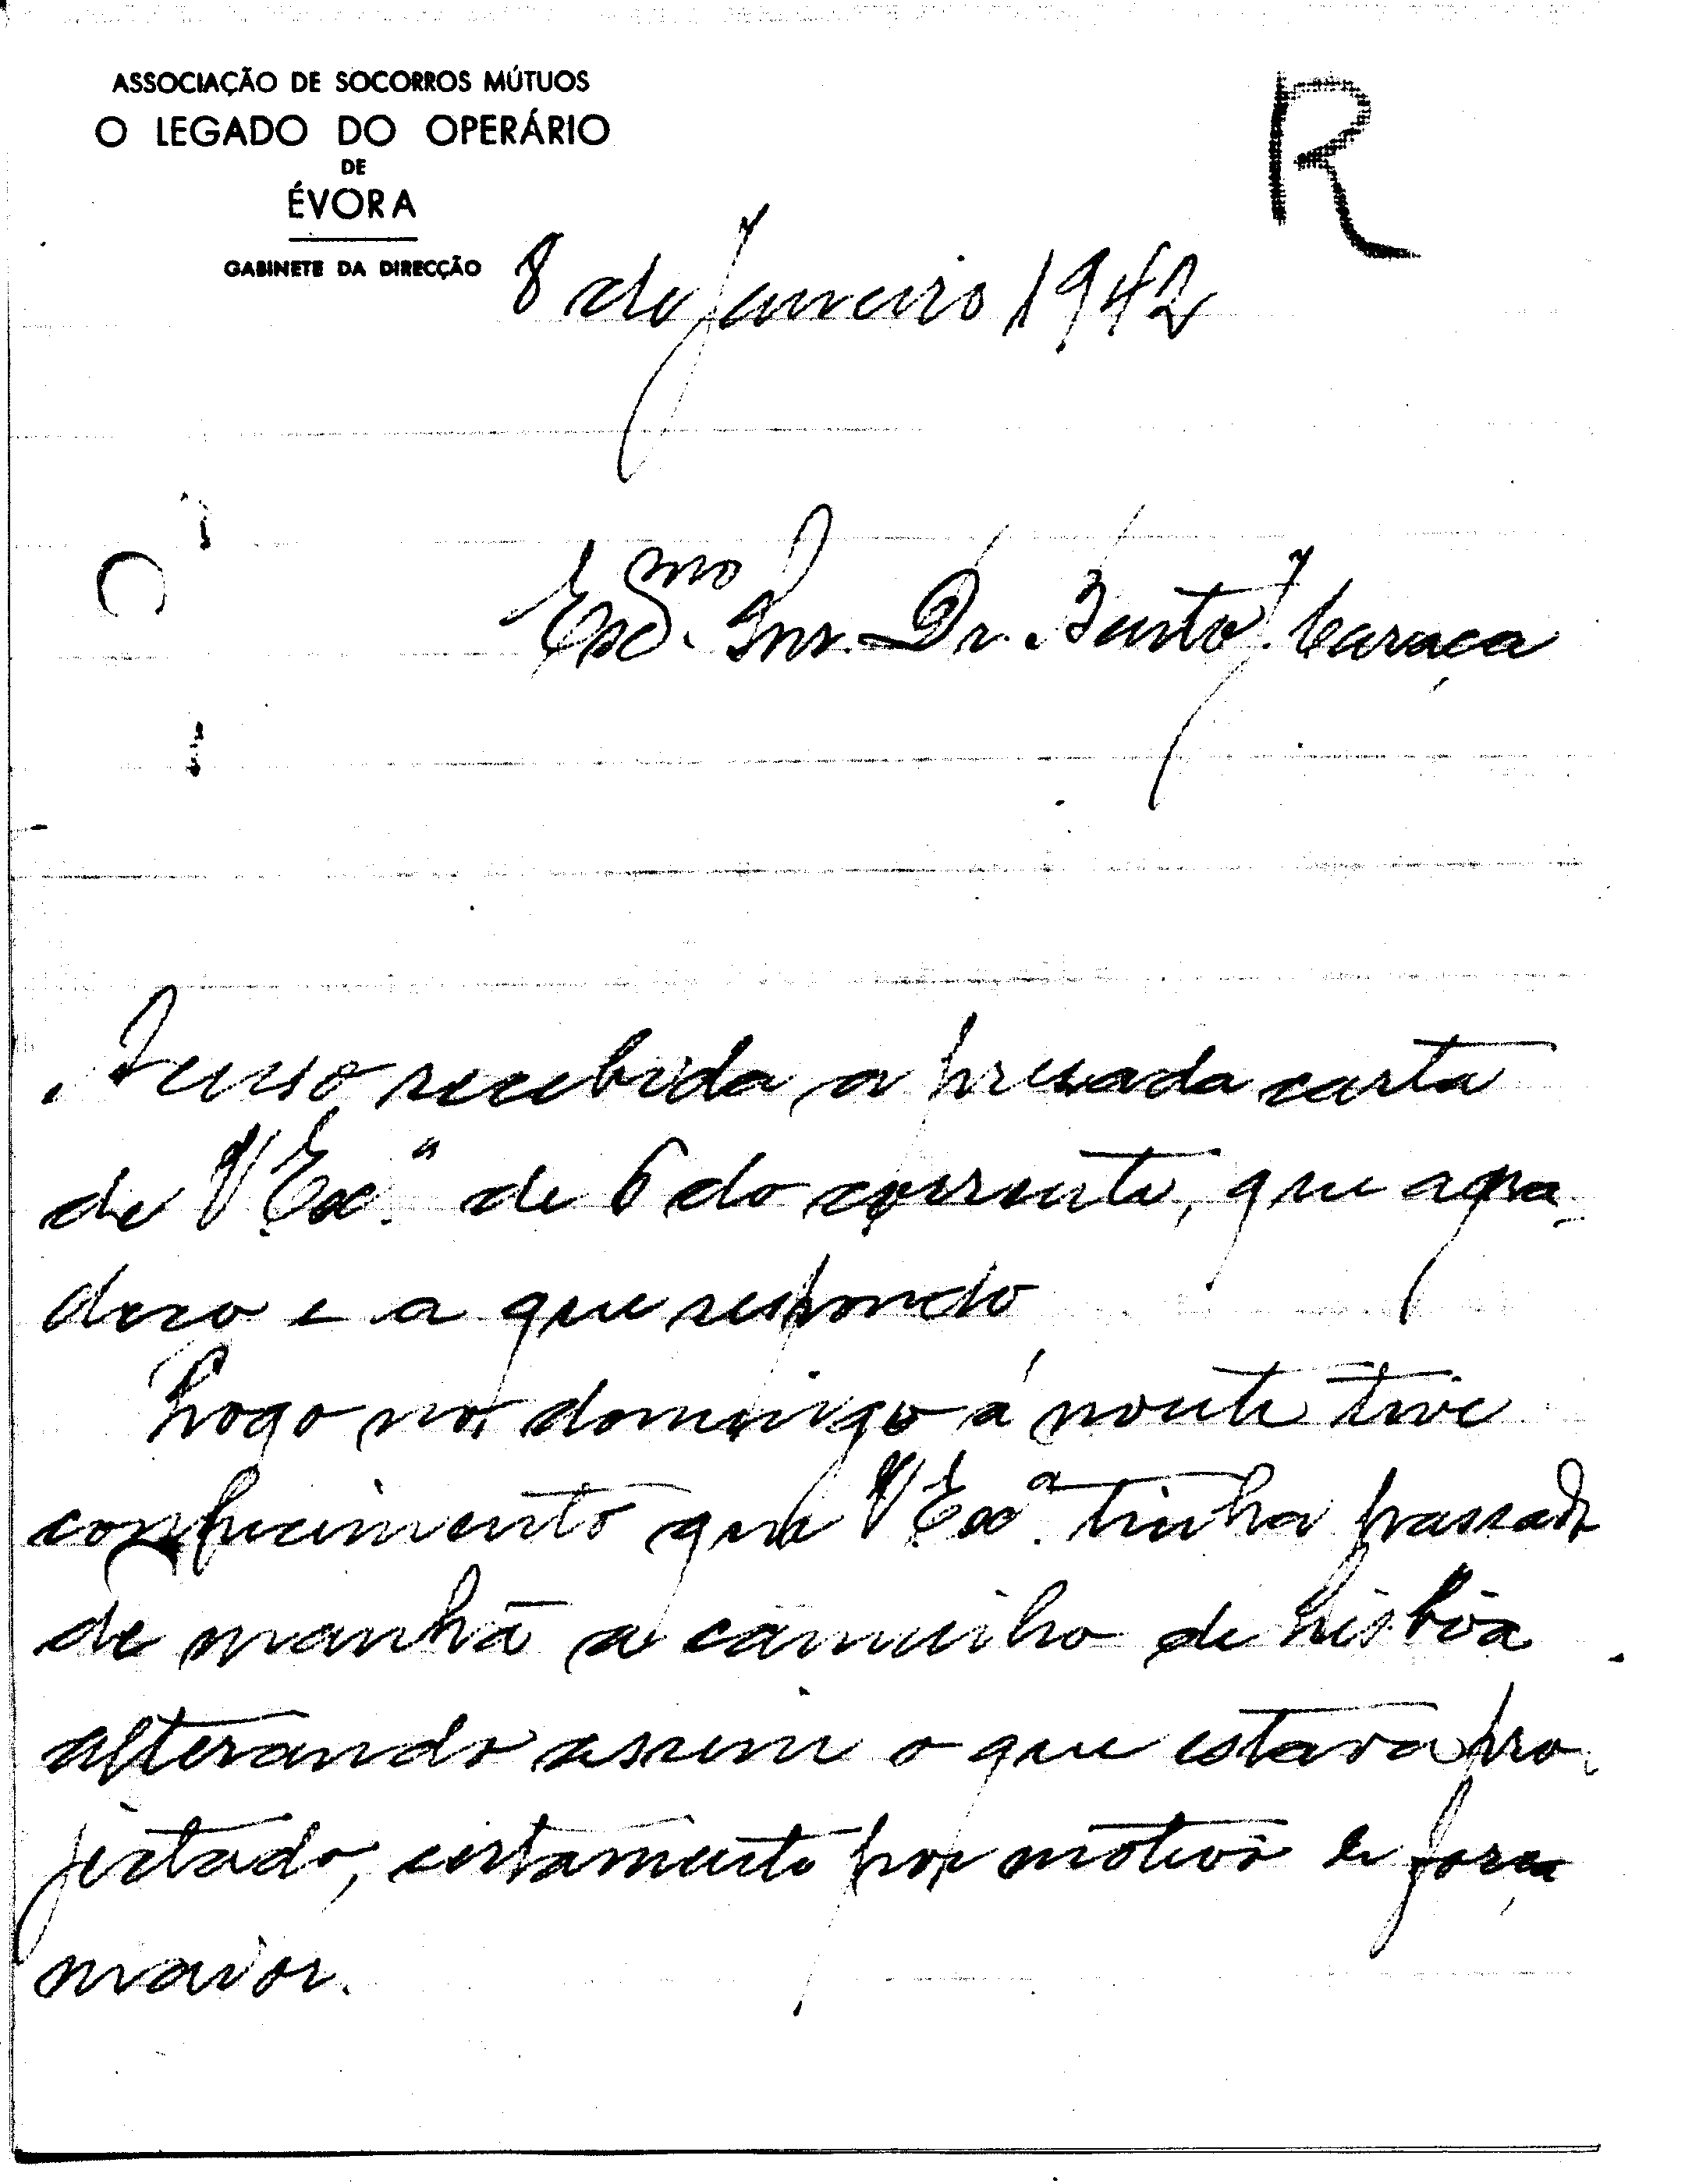 ASSOCIAÇÃO DE SOCORROS MÚTUOS
O LEGADO DO OPERÁRIO
DE
ÉVORA
GABINETE DA DIRECÇÃO
R
8 de Janeiro 1942
Exmo. Snr. Dr. Bento J. Caraça
Acuso recebida a presada carta
de V Ex.ª de 6 do corrente, que agra
deço e a que respondo
Logo no domingo á noute tive
conhecimento que V Exª. tinha passado
de manhã a caminho de Lisbôa
alterando assim o que estava pro
jectado, certamente por motivo de força
maior.